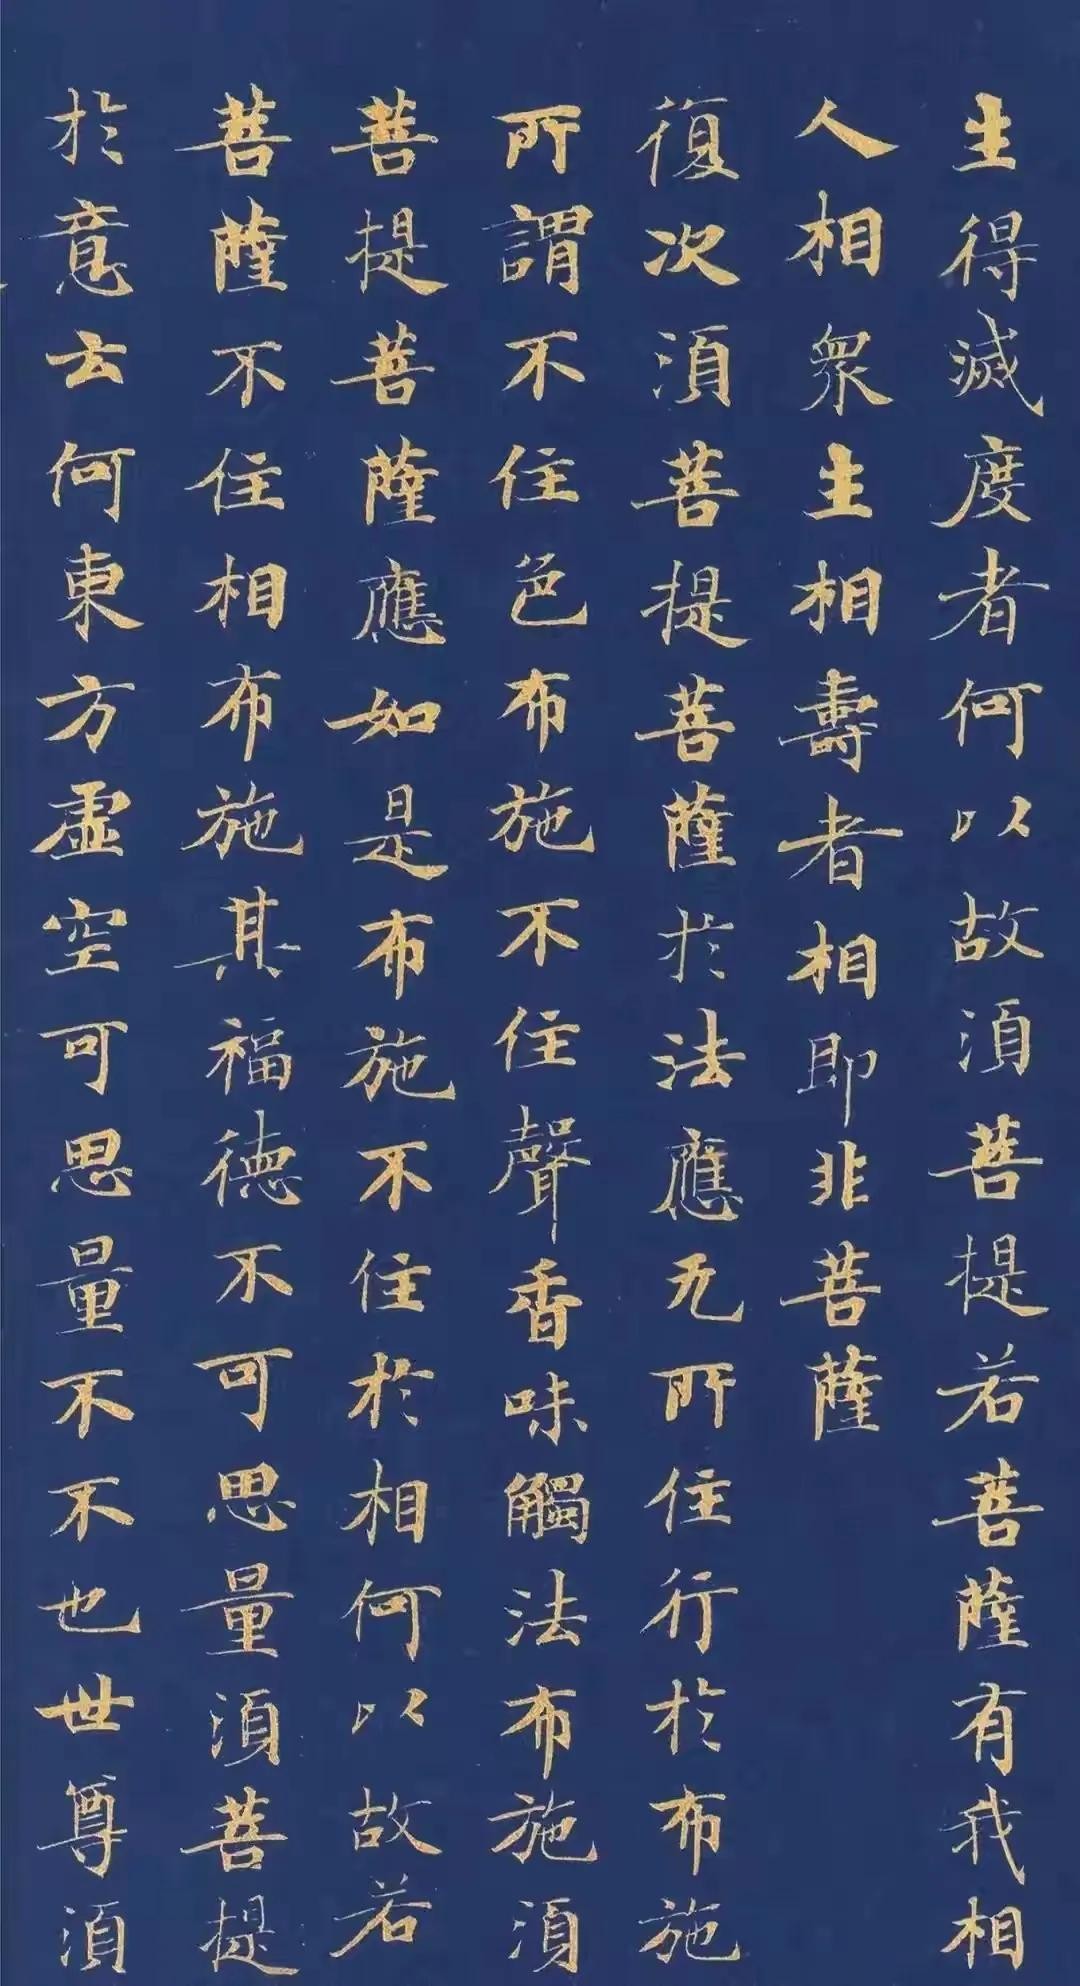 生得滅度者何以故須菩提若菩薩有我相
人相衆生相壽者相即非菩薩
復次須菩提菩薩於法應无所住行於布施
所謂不住色布施不住聲香味觸法布施須
菩提菩薩應如是布施不住於相何以故若
菩薩不住相布施其福德不可思量須菩提
於意云何東方虛空可思量不不也世尊須